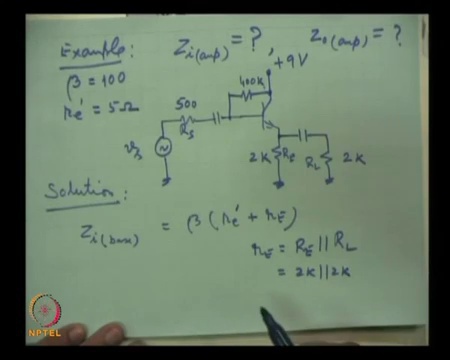 Example: Zi(amp) = ?, Zo(amp) = ?
β = 100
re' = 5Ω
+9V
400K
500
RS
vs
2K RE
RL 2K
Solution:
Zi(base) = β (re' + rE)
rE = RE || RL
= 2K || 2K
NPTEL